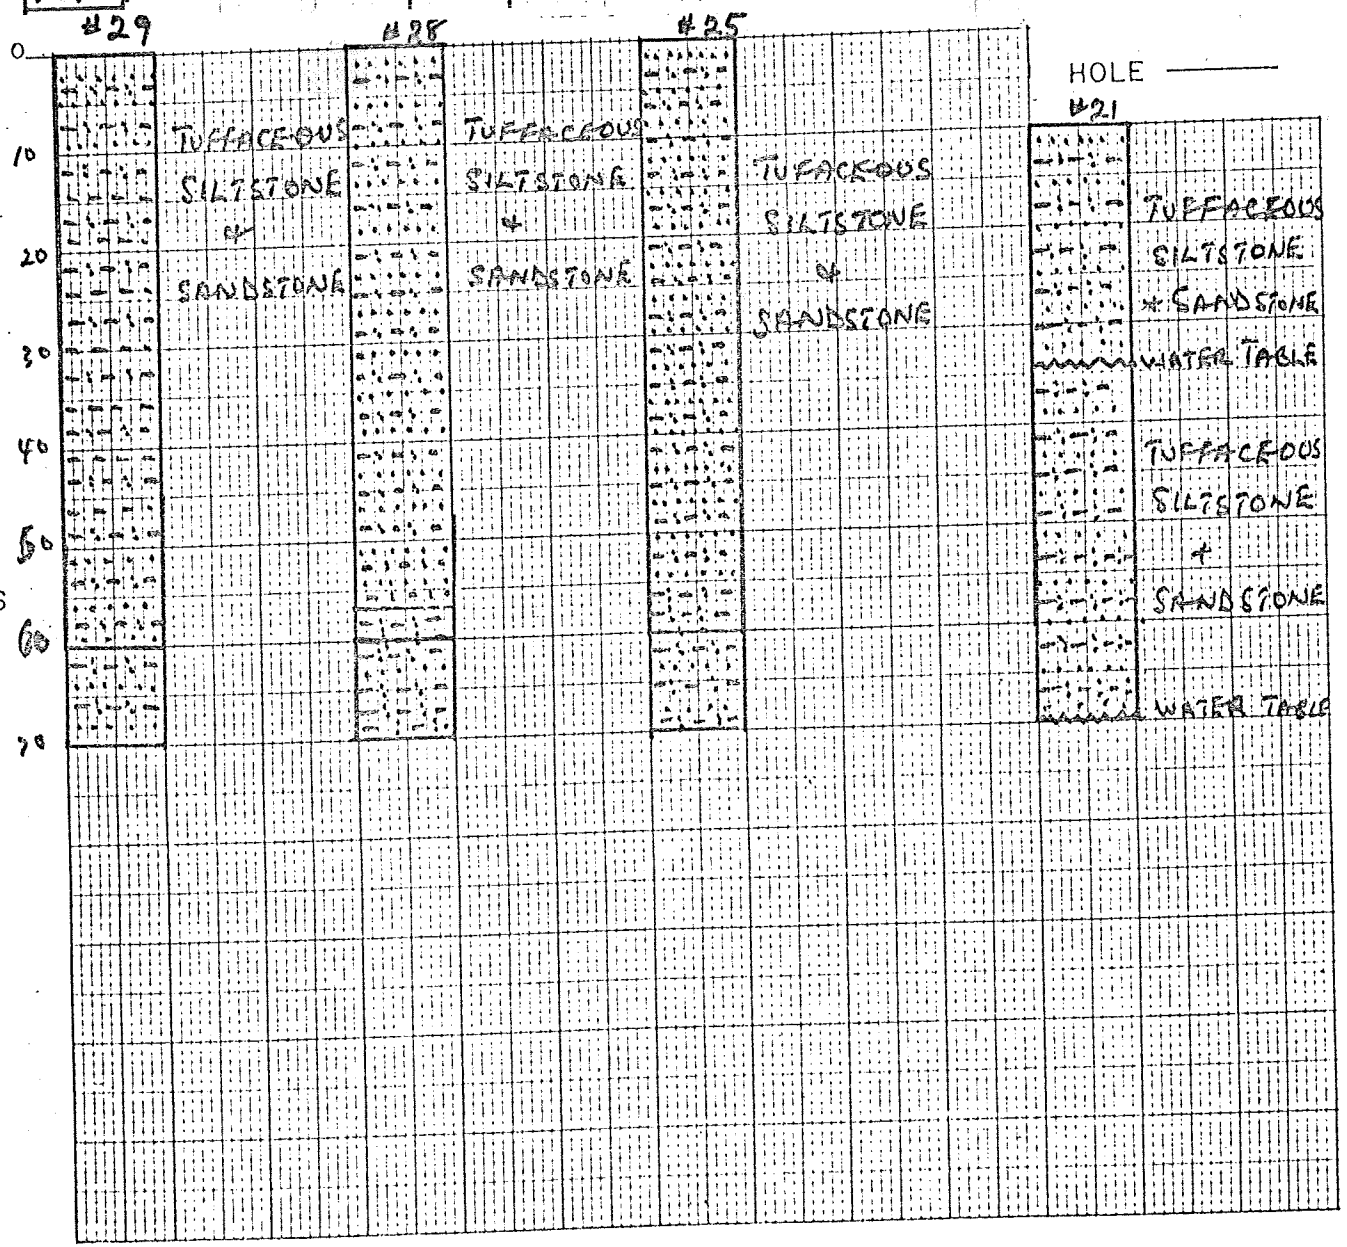 #29
#28
#25
HOLE
#21
0
10
20
30
40
50
60
70
S
TUFFACEOUS
SILTSTONE
&
SANDSTONE
TUFFACEOUS
SILTSTONE
&
SANDSTONE
TUFACEOUS
SILTSTONE
&
SANDSTONE
TUFFACEOUS
SILTSTONE
& SANDSTONE
WATER TABLE
TUFFACEOUS
SILTSTONE
+
SANDSTONE
WATER TABLE